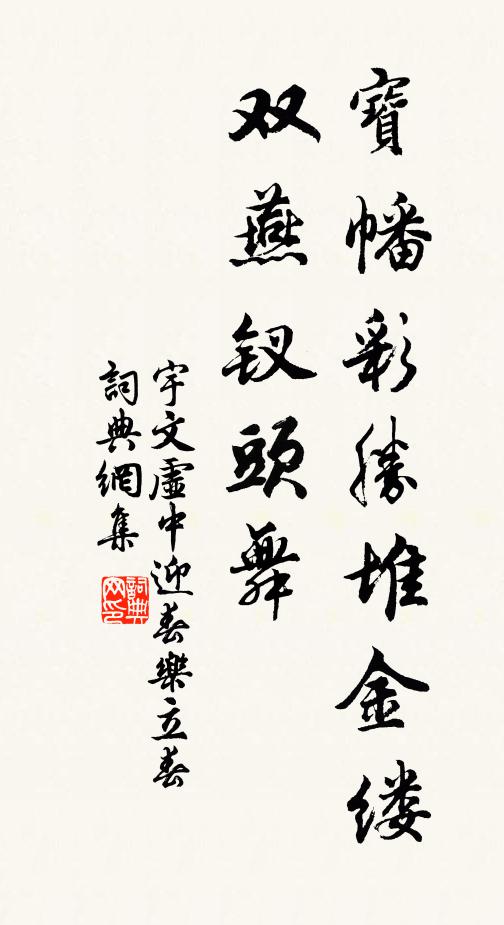 寶幡彩勝堆金缕
双燕钗頭舞
宇文虛中迎春樂立春
詞典網集
詞典
网印